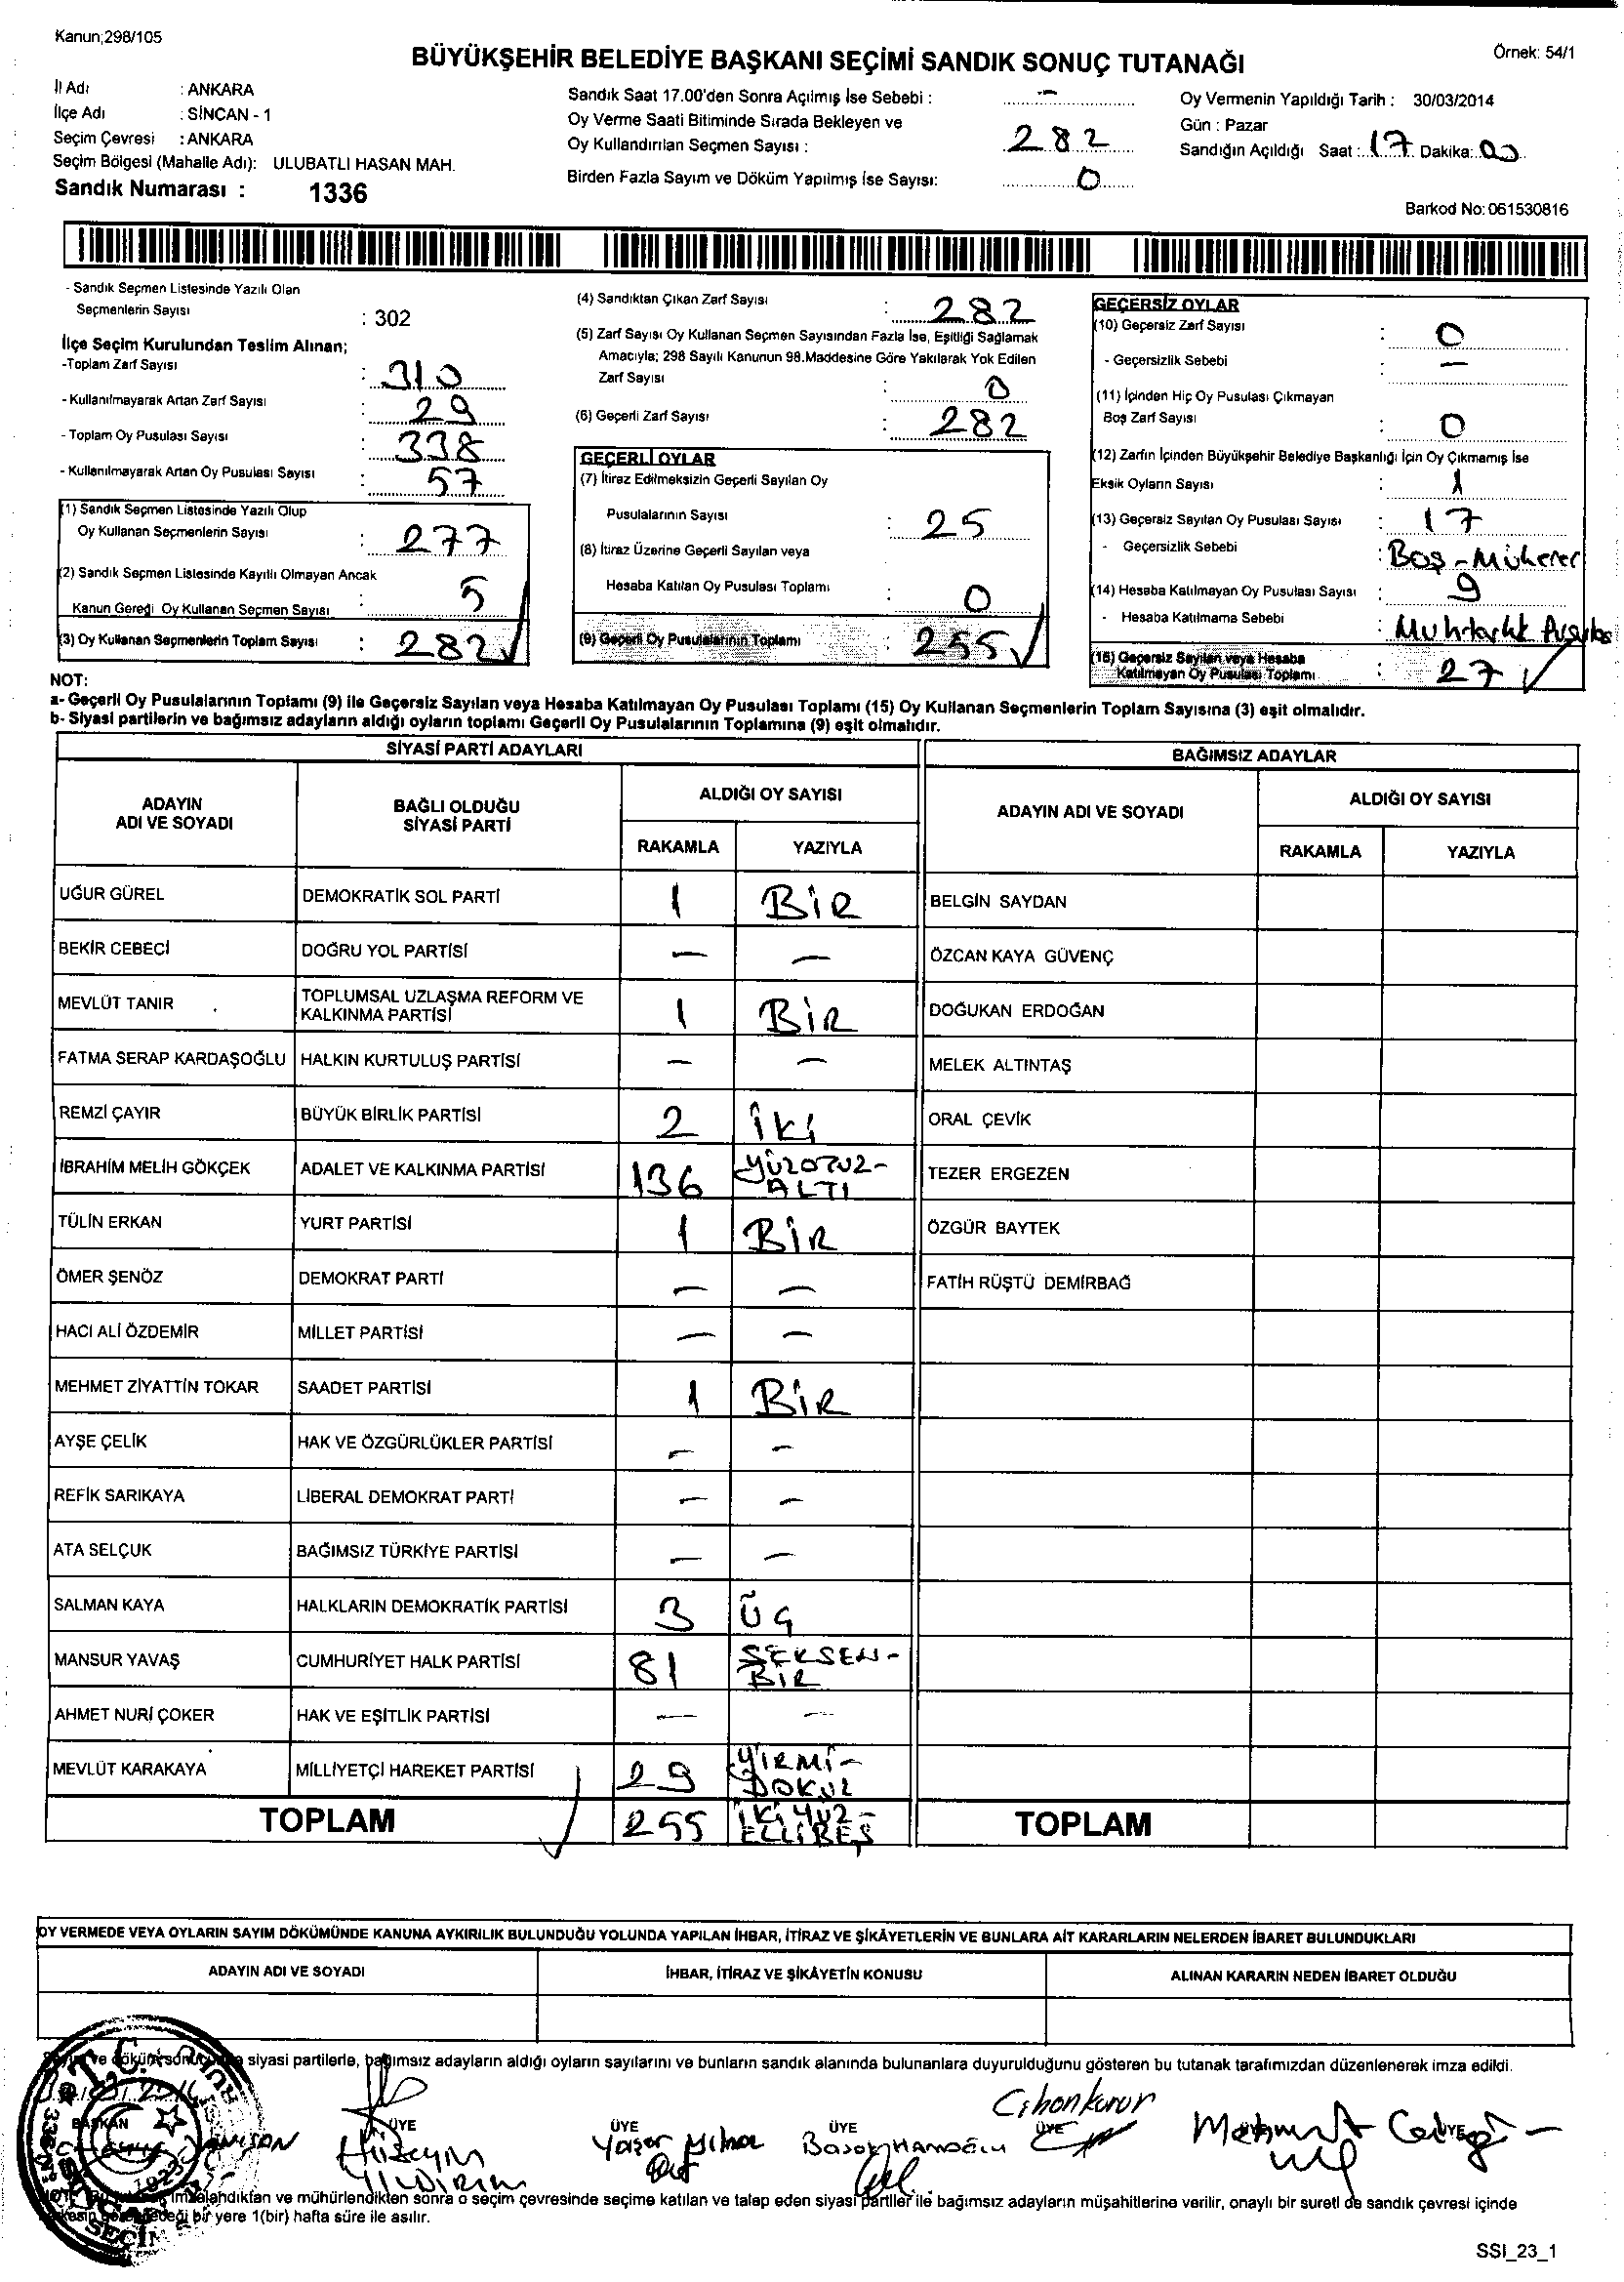 Kanun;298/105
Örnek: 54/1
BÜYÜKŞEHİR BELEDİYE BAŞKANI SEÇİMİ SANDIK SONUÇ TUTANAĞI
İl Adı : ANKARA
İlçe Adı : SİNCAN - 1
Seçim Çevresi : ANKARA
Seçim Bölgesi (Mahalle Adı): ULUBATLI HASAN MAH.
Sandık Numarası : 1336
Sandık Saat 17.00'den Sonra Açılmış İse Sebebi : -
Oy Verme Saati Bitiminde Sırada Bekleyen ve
Oy Kullandırılan Seçmen Sayısı : 282
Birden Fazla Sayım ve Döküm Yapılmış İse Sayısı: 0
Oy Vermenin Yapıldığı Tarih : 30/03/2014
Gün : Pazar
Sandığın Açıldığı Saat : 17 Dakika: 00
Barkod No: 061530816
- Sandık Seçmen Listesinde Yazılı Olan
Seçmenlerin Sayısı : 302
İlçe Seçim Kurulundan Teslim Alınan;
-Toplam Zarf Sayısı : 310
- Kullanılmayarak Artan Zarf Sayısı : 29
- Toplam Oy Pusulası Sayısı : 338
- Kullanılmayarak Artan Oy Pusulası Sayısı : 57
(1) Sandık Seçmen Listesinde Yazılı Olup
Oy Kullanan Seçmenlerin Sayısı : 277
(2) Sandık Seçmen Listesinde Kayıtlı Olmayan Ancak
Kanun Gereği Oy Kullanan Seçmen Sayısı : 5
(3) Oy Kullanan Seçmenlerin Toplam Sayısı : 282
(4) Sandıktan Çıkan Zarf Sayısı : 282
(5) Zarf Sayısı Oy Kullanan Seçmen Sayısından Fazla İse, Eşitliği Sağlamak
Amacıyla; 298 Sayılı Kanunun 98.Maddesine Göre Yakılarak Yok Edilen
Zarf Sayısı : 0
(6) Geçerli Zarf Sayısı : 282
GEÇERLİ OYLAR
(7) İtiraz Edilmeksizin Geçerli Sayılan Oy
Pusulalarının Sayısı : 25
(8) İtiraz Üzerine Geçerli Sayılan veya
Hesaba Katılan Oy Pusulası Toplamı : 0
(9) Geçerli Oy Pusulalarının Toplamı : 255
GEÇERSİZ OYLAR
(10) Geçersiz Zarf Sayısı : 0
- Geçersizlik Sebebi : -
(11) İçinden Hiç Oy Pusulası Çıkmayan
Boş Zarf Sayısı : 0
(12) Zarfın İçinden Büyükşehir Belediye Başkanlığı İçin Oy Çıkmamış İse
Eksik Oyların Sayısı : 1
(13) Geçersiz Sayılan Oy Pusulası Sayısı : 17
- Geçersizlik Sebebi : Boş - Mükerer
(14) Hesaba Katılmayan Oy Pusulası Sayısı : 9
- Hesaba Katılmama Sebebi : Muhtarlık
(15) Geçersiz Sayılan veya Hesaba
Katılmayan Oy Pusulası Toplamı : 27
NOT:
a- Geçerli Oy Pusulalarının Toplamı (9) ile Geçersiz Sayılan veya Hesaba Katılmayan Oy Pusulası Toplamı (15) Oy Kullanan Seçmenlerin Toplam Sayısına (3) eşit olmalıdır.
b- Siyasi partilerin ve bağımsız adayların aldığı oyların toplamı Geçerli Oy Pusulalarının Toplamına (9) eşit olmalıdır.
SİYASİ PARTİ ADAYLARI
BAĞIMSIZ ADAYLAR
ADAYIN ADI VE SOYADI
BAĞLI OLDUĞU SİYASİ PARTİ
ALDIĞI OY SAYISI
RAKAMLA YAZIYLA
ADAYIN ADI VE SOYADI
ALDIĞI OY SAYISI
RAKAMLA YAZIYLA
UĞUR GÜREL DEMOKRATİK SOL PARTİ 1 BİR BELGİN SAYDAN
BEKİR CEBECİ DOĞRU YOL PARTİSİ - - ÖZCAN KAYA GÜVENÇ
MEVLÜT TANIR TOPLUMSAL UZLAŞMA REFORM VE KALKINMA PARTİSİ 1 BİR DOĞUKAN ERDOĞAN
FATMA SERAP KARDAŞOĞLU HALKIN KURTULUŞ PARTİSİ - - MELEK ALTINTAŞ
REMZİ ÇAYIR BÜYÜK BİRLİK PARTİSİ 2 İKİ ORAL ÇEVİK
İBRAHİM MELİH GÖKÇEK ADALET VE KALKINMA PARTİSİ 136 YÜZOTUZ-ALTI TEZER ERGEZEN
TÜLİN ERKAN YURT PARTİSİ 1 BİR ÖZGÜR BAYTEK
ÖMER ŞENÖZ DEMOKRAT PARTİ - - FATİH RÜŞTÜ DEMİRBAĞ
HACI ALİ ÖZDEMİR MİLLET PARTİSİ - -
MEHMET ZİYATTİN TOKAR SAADET PARTİSİ 1 BİR
AYŞE ÇELİK HAK VE ÖZGÜRLÜKLER PARTİSİ - -
REFİK SARIKAYA LİBERAL DEMOKRAT PARTİ - -
ATA SELÇUK BAĞIMSIZ TÜRKİYE PARTİSİ - -
SALMAN KAYA HALKLARIN DEMOKRATİK PARTİSİ 3 ÜÇ
MANSUR YAVAŞ CUMHURİYET HALK PARTİSİ 81 SEKSEN-BİR
AHMET NURİ ÇOKER HAK VE EŞİTLİK PARTİSİ - -
MEVLÜT KARAKAYA MİLLİYETÇİ HAREKET PARTİSİ 29 YİRMİ-DOKUZ
TOPLAM 255 İKİYÜZ-ELLİBEŞ TOPLAM
OY VERMEDE VEYA OYLARIN SAYIM DÖKÜMÜNDE KANUNA AYKIRILIK BULUNDUĞU YOLUNDA YAPILAN İHBAR, İTİRAZ VE ŞİKÂYETLERİN VE BUNLARA AİT KARARLARIN NELERDEN İBARET BULUNDUKLARI
ADAYIN ADI VE SOYADI İHBAR, İTİRAZ VE ŞİKÂYETİN KONUSU ALINAN KARARIN NEDEN İBARET OLDUĞU
siyasi partilerle, bağımsız adayların aldığı oyların sayılarını ve bunların sandık alanında bulunanlara duyurulduğunu gösteren bu tutanak tarafımızdan düzenlenerek imza edildi.
BAŞKAN ÜYE ÜYE ÜYE ÜYE
Hüseyin YILDIRIM
Yaşar
Cihan
Mehmet
imzalandıktan ve mühürlendikten sonra o seçim çevresinde seçime katılan ve talep eden siyasi partiler ile bağımsız adayların müşahitlerine verilir, onaylı bir sureti de sandık çevresi içinde
bir yere 1(bir) hafta süre ile asılır.
T.C.
1923
SEÇİM
SSI_23_1